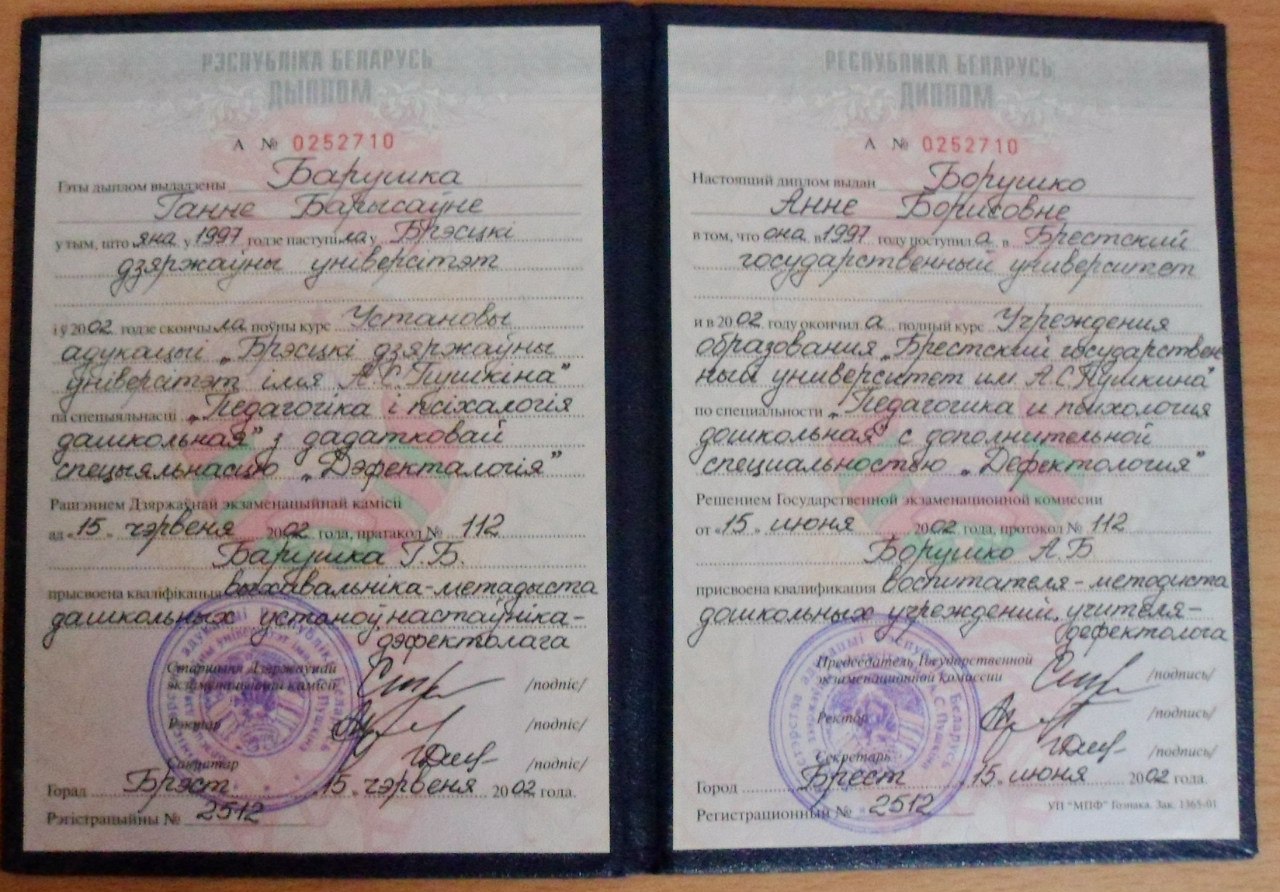 РЭСПУБЛІКА БЕЛАРУСЬ
ДЫПЛОМ
А № 0252710
Гэты дыплом выдадзены Барушка
Ганне Барысаўне
у тым, што яна у 1997 годзе паступіла у Брэсцкі
дзяржаўны універсітэт
і ў 2002 годзе скончыла поўны курс Установы
адукацыі „Брэсцкі дзяржаўны
універсітэт імя А.С.Пушкіна"
па спецыяльнасці „Педагогіка і псіхалогія
дашкольная" з дадатковай
спецыяльнасцю „Дэфекталогія"
Рашэннем Дзяржаўнай экзаменацыйнай камісіі
ад «15» чэрвеня 2002 года, пратакол № 112
Барушка Г.Б.
прысвоена кваліфікацыя выхавальніка-метадыста
дашкольных устаноў, настаўніка-
дэфектолага
Старшыня Дзяржаўнай
экзаменацыйнай камісіі /подпіс/
Рэктар /подпіс/
Сакратар /подпіс/
Горад Брэст 15 чэрвеня 2002 года.
Рэгістрацыйны № 2512
РЕСПУБЛИКА БЕЛАРУСЬ
ДИПЛОМ
А № 0252710
Настоящий диплом выдан Борушко
Анне Борисовне
в том, что она в 1997 году поступила в Брестский
государственный университет
и в 2002 году окончила полный курс Учреждения
образования „Брестский государствен
ный университет им. А.С.Пушкина"
по специальности „Педагогика и психология
дошкольная" с дополнительной
специальностью „Дефектология"
Решением Государственной экзаменационной комиссии
от «15» июня 2002 года, протокол № 112
Борушко А.Б
присвоена квалификация воспитателя-методиста
дошкольных учреждений, учителя-
дефектолога
Председатель Государственной
экзаменационной комиссии /подпись/
Ректор /подпись/
Секретарь /подпись/
Город Брест 15 июня 2002 года.
Регистрационный № 2512
УП "МПФ" Гознака. Зак. 1365-01